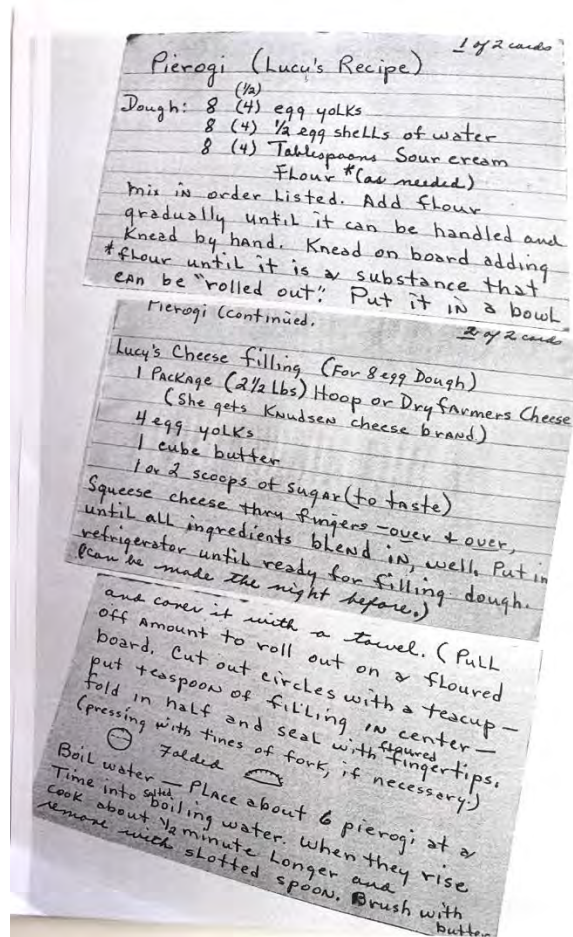 1 of 2 cards
Pierogi (Lucy's Recipe)
(1/2)
Dough: 8 (4) egg yolks
8 (4) 1/2 egg shells of water
8 (4) Tablespoons Sour cream
Flour *(as needed)
mix in order Listed. Add flour
gradually until it can be handled and
Knead by hand. Knead on board adding
*flour until it is a substance that
can be "rolled out". Put it in a bowl
Pierogi (continued.
2 of 2 cards
Lucy's Cheese filling (For 8 egg Dough)
1 Package (2 1/2 Lbs) Hoop or Dry farmers Cheese
(She gets Knudsen cheese brand)
4 egg yolks
1 cube butter
1 or 2 scoops of sugar (to taste)
Squeese cheese thru fingers - over & over,
until all ingredients blend in, well. Put in
refrigerator until ready for filling dough.
(Can be made the night before.)
and cover it with a towel. (Pull
off amount to roll out on a floured
board. Cut out circles with a teacup -
put teaspoon of filling in center -
fold in half and seal with floured fingertips.
(pressing with tines of fork, if necessary.)
Folded
Boil water - Place about 6 pierogi at a
Time into salted boiling water. When they rise
cook about 1/2 minute Longer and
remove with slotted spoon. Brush with
butter